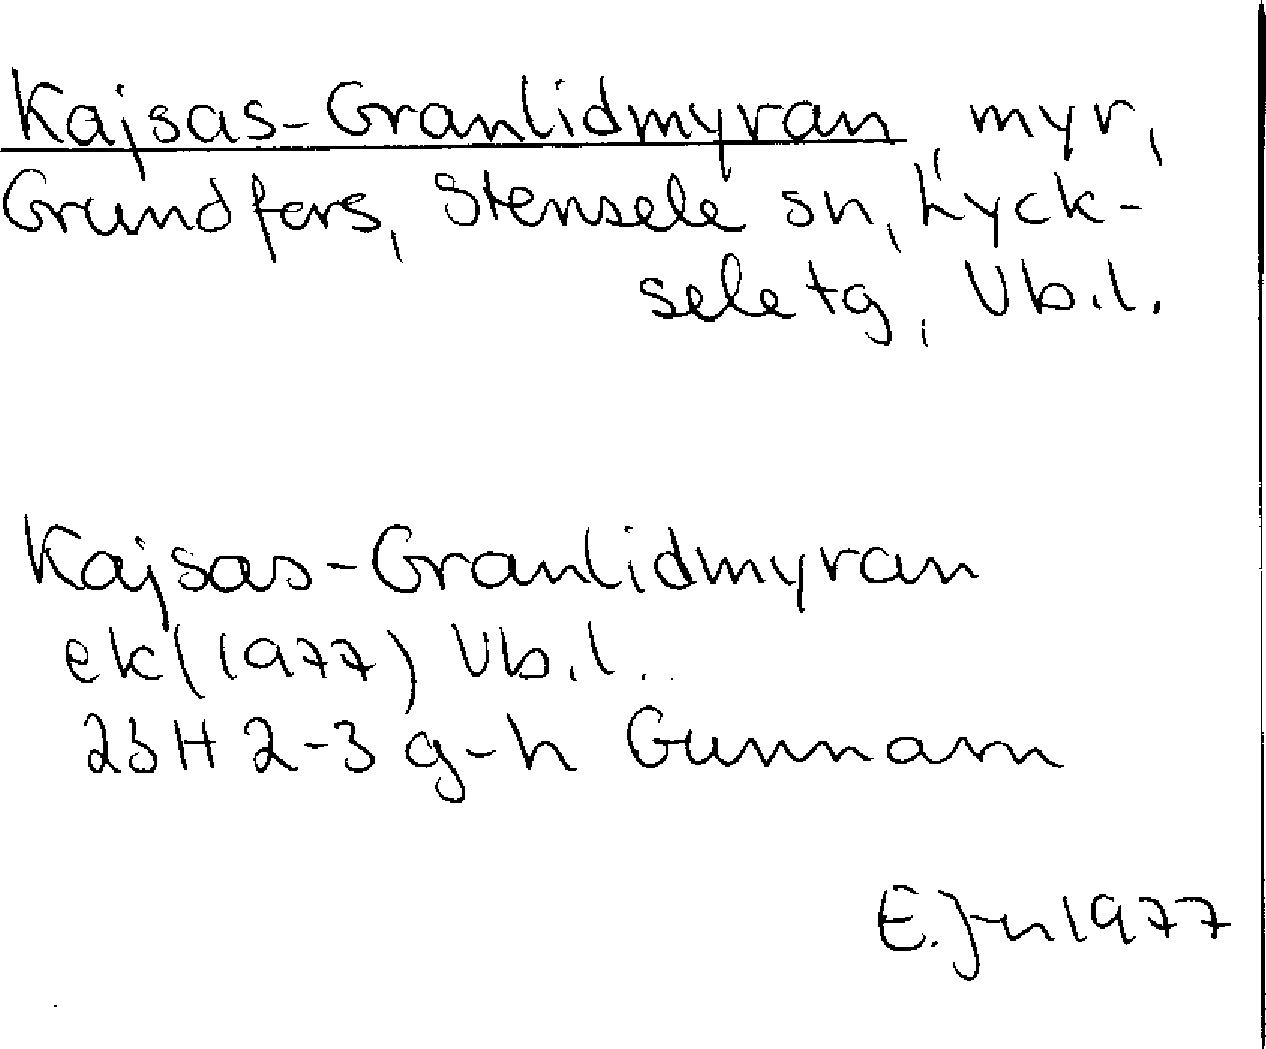 Kajsas-Granlidmyran, myr,
Grundfors, Stensele sn, Lyck-
sele tg, Vb.l.
Kajsas-Granlidmyran
ek (1977) Vb.l.
23H 2-3 g-h Gunnarn
E. Jn 1977